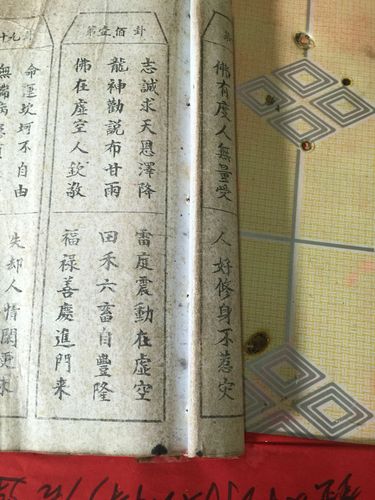 佛有度人無量受
人好修身不惹灾
第壹佰卦
志誠求天恩澤降
雷庭震動在虛空
龍神勸説布甘雨
田禾六畜自豐隆
佛在虛空人欽敬
福禄善慶進門来
十九
命運坎坷不自由
無端病
失却人情閑更